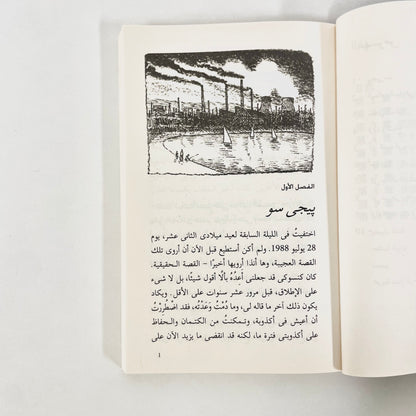 الفصل الأول
پيجى سو
اختفيتُ فى الليلة السابقة لعيد ميلادى الثانى عشر، يوم
28 يوليو 1988. ولم أكن أستطيع قبل الآن أن أروى تلك
القصة العجيبة، وها أنذا أرويها أخيرًا – القصة الحقيقية.
كان كنسوكى قد جعلنى أعدُهُ بألّا أقول شيئًا، بل لا شىء
على الإطلاق، قبل مرور عشر سنوات على الأقل. ويكاد
يكون ذلك آخر ما قاله لى، وما دُمْتُ وَعَدْتُه، فقد اضْطُررْتُ
أن أعيش فى أكذوبة، وتمكنتُ من الكتمان والحفاظ
على أكذوبتى فترة ما، لكنه قد انقضى ما يزيد الآن على
1